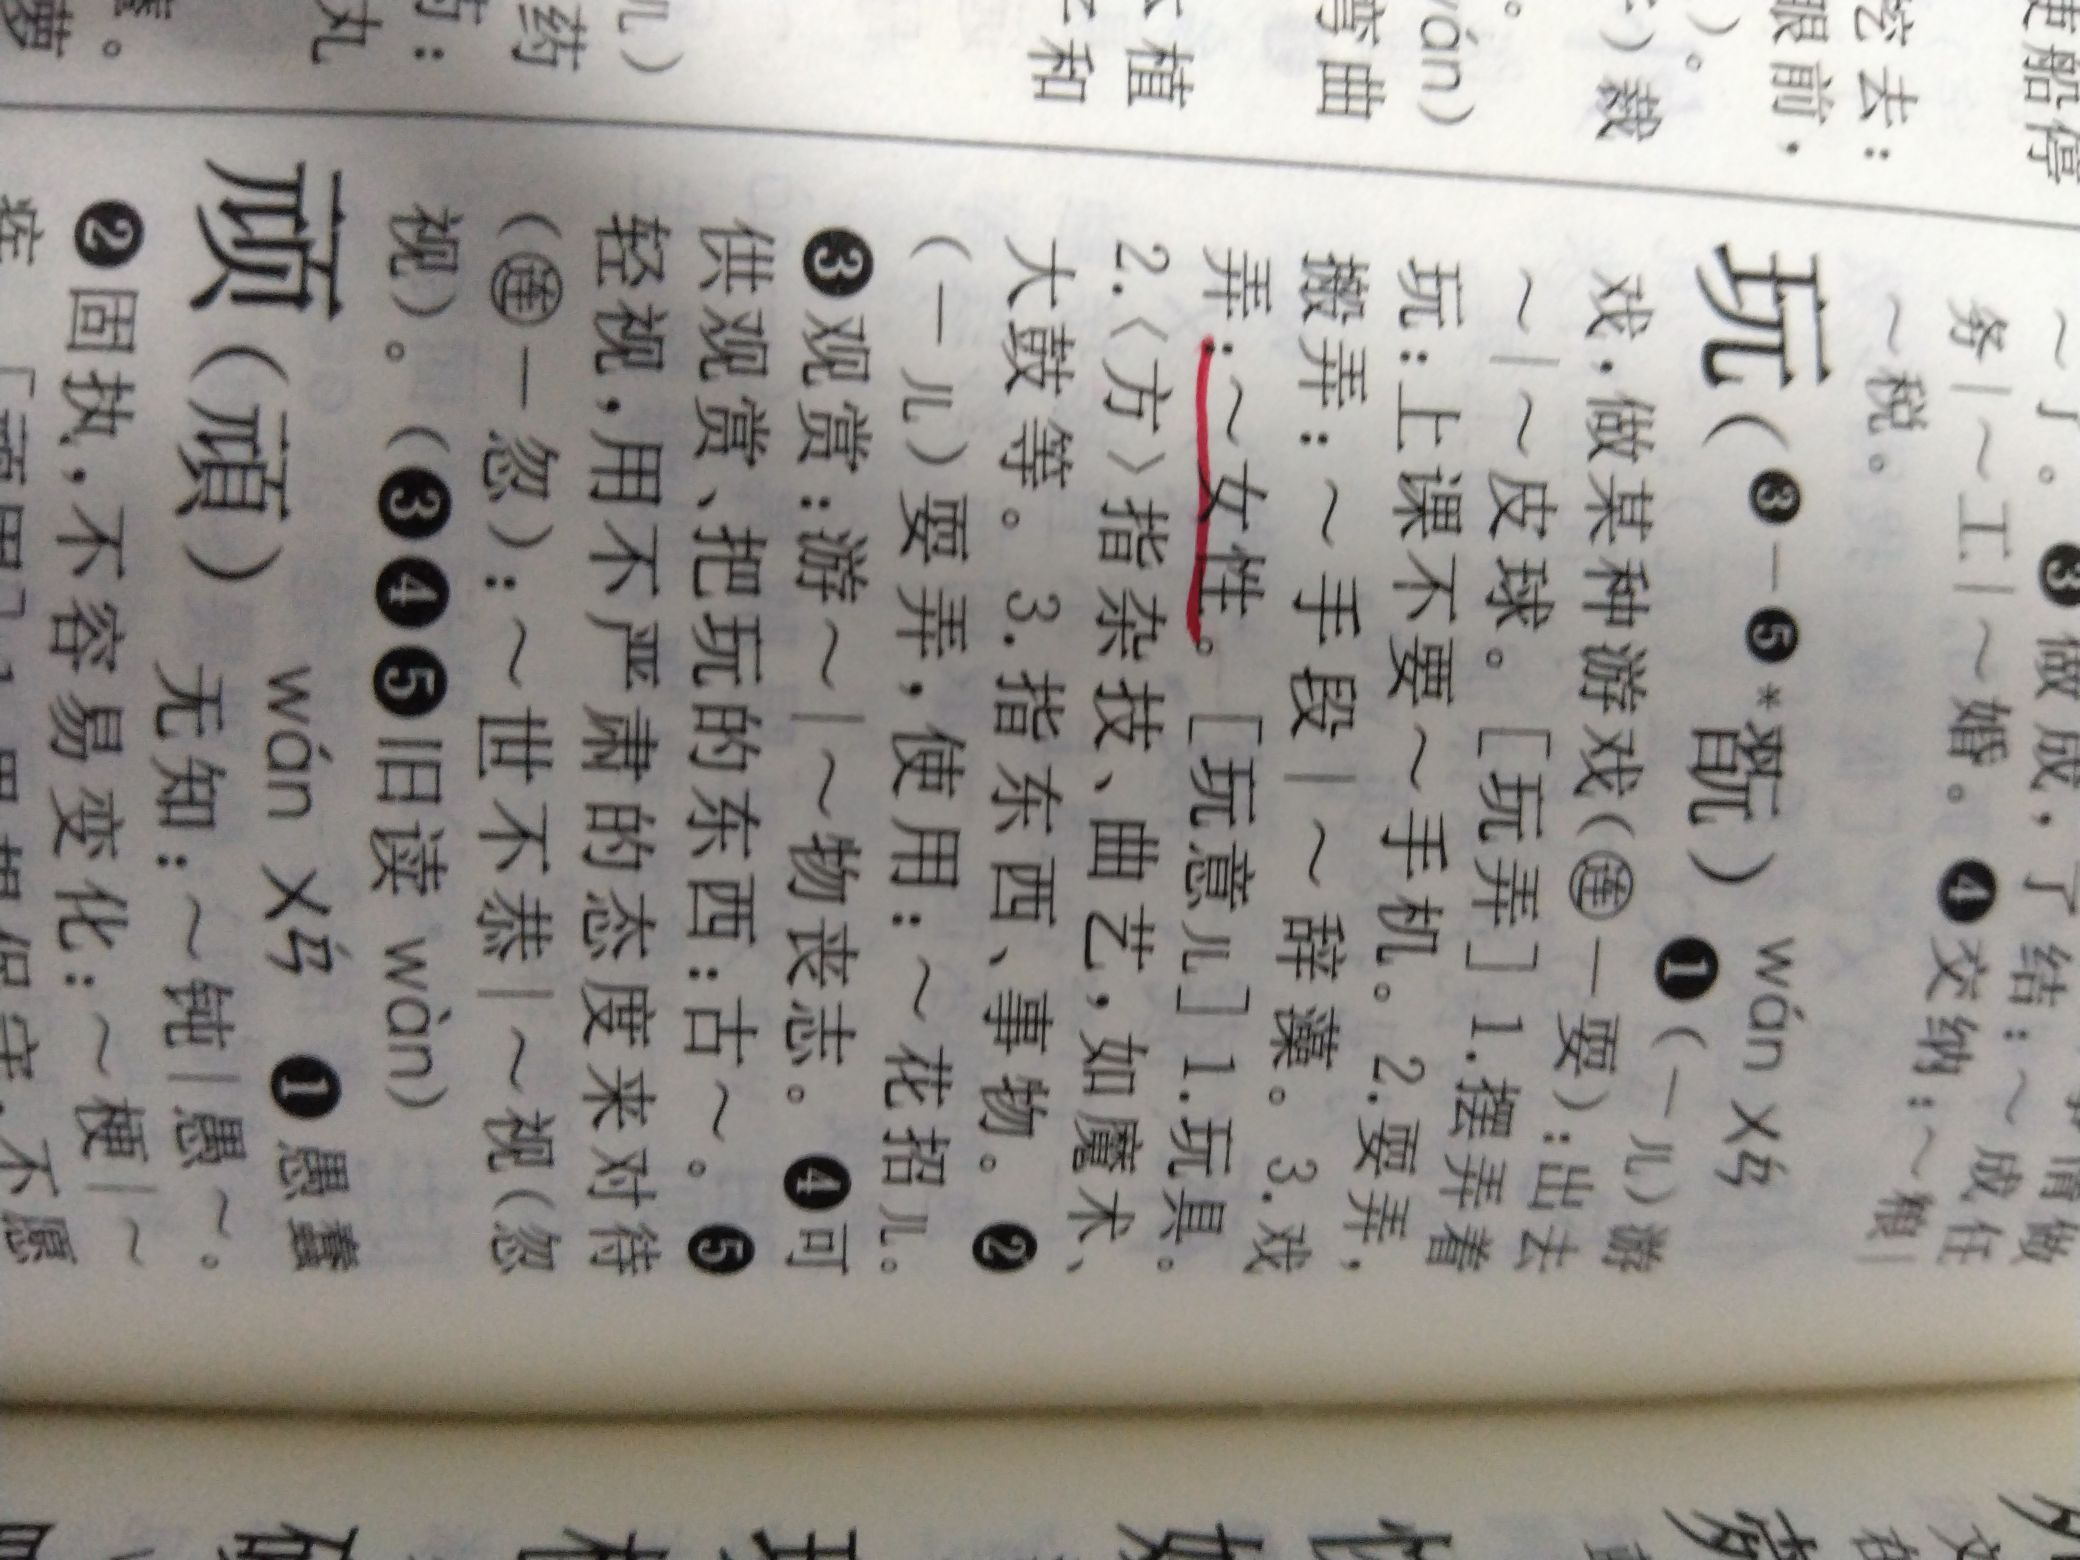 ～了。❸做成,了结:～成任
务|～工|～婚。❹交纳:～粮|
～税。
玩(❸-❺*翫) wán ㄨㄢˊ
❶(一儿)游
戏,做某种游戏(㊣一耍):出去
～|～皮球。[玩弄]1.摆弄着
玩:上课不要～手机。2.耍弄,
搬弄:～手段|～辞藻。3.戏
弄:～女性。[玩意儿]1.玩具。
2.〈方〉指杂技、曲艺,如魔术、
大鼓等。3.指东西、事物。❷
(一儿)耍弄,使用:～花招儿。
❸观赏:游～|～物丧志。❹可
供观赏、把玩的东西:古～。❺
轻视,用不严肃的态度来对待
(㊣一忽):～世不恭|～视(忽
视)。(❸❹❺旧读 wàn)
顽(頑) wán ㄨㄢˊ
❶愚蠢
无知:～钝|愚～。
❷固执,不容易变化:～梗|～
使船停
眼前,
)截
ván)
弯曲
植
和
药
丸